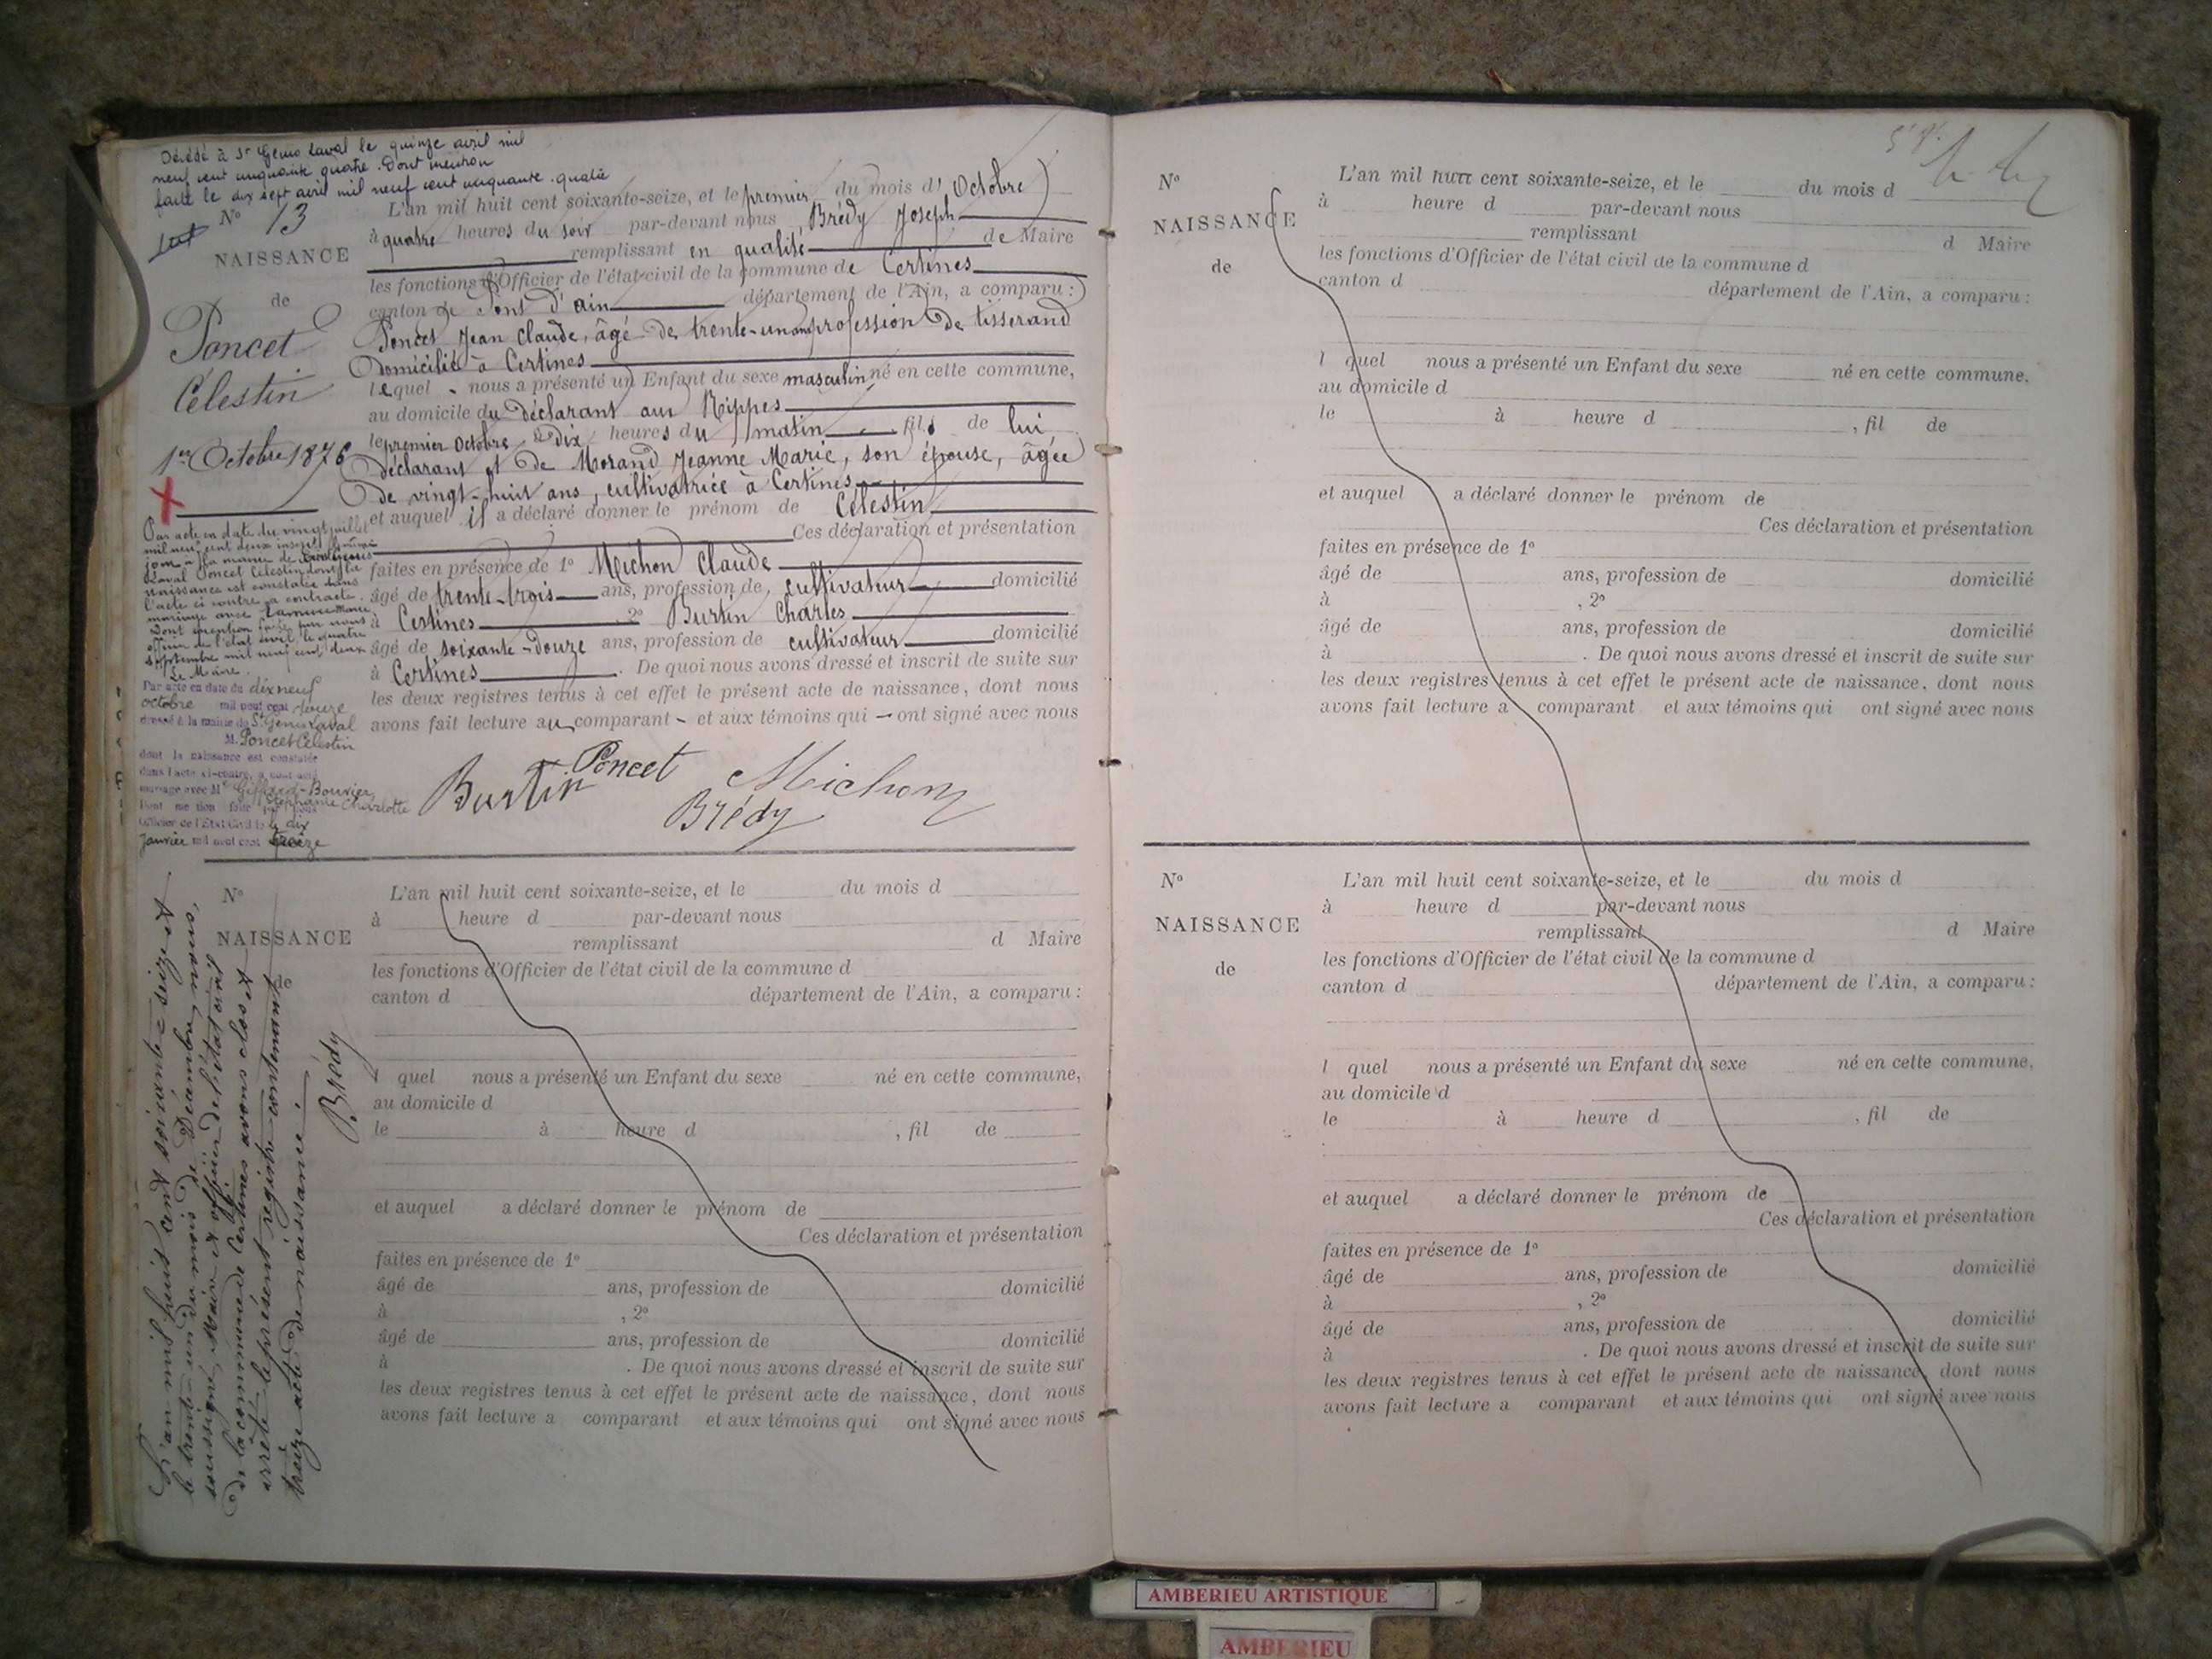 Décédé à St Genis Laval le quinze avril mil
neuf cent cinquante quatre. Dont mention
faite le dix sept avril mil neuf cent cinquante quatre
N° 13
NAISSANCE
de
Poncet
Célestin
1er Octobre 1876
L'an mil huit cent soixante-seize, et le premier du mois d'Octobre
à quatre heures du soir par-devant nous, Brédy Joseph
remplissant en qualité de Maire
les fonctions d'Officier de l'état civil de la commune de Certines
canton de Pont d'ain département de l'Ain, a comparu :
Poncet Jean Claude, âgé de trente-un ans profession de tisserand
Domicilié à Certines
lequel nous a présenté un Enfant du sexe masculin né en cette commune,
au domicile du Déclarant aux Rippes
le premier Octobre à Dix heures du matin fils de lui
Déclarant et de Morand Jeanne Marie, son épouse, âgée
De vingt-huit ans, cultivatrice à Certines
et auquel il a déclaré donner le prénom de Célestin
Ces déclaration et présentation
faites en présence de 1° Michon Claude
âgé de trente-trois ans, profession de cultivateur domicilié
à Certines 2° Burtin Charles
âgé de soixante-Douze ans, profession de cultivateur domicilié
à Certines. De quoi nous avons dressé et inscrit de suite sur
les deux registres tenus à cet effet le présent acte de naissance, dont nous
avons fait lecture au comparant et aux témoins qui ont signé avec nous
Burtin Poncet Michon
Brédy
Par acte en date du vingt juillet
mil neuf cent deux inscrit
jour à la mairie de
Laval Poncet Célestin dont la
naissance est constatée dans
l'acte ci contre a contracté
mariage avec
Dont mention faite par nous
officier de l'état civil le quatre
septembre mil neuf cent deux
Le Maire.
Par acte en date du dix neuf
octobre mil neuf cent douze
dressé à la mairie de St Genis Laval
M. Poncet Célestin
dont la naissance est constatée
dans l'acte ci-contre, a contracté
mariage avec Mle Giffard-Bouvier
Stéphanie Charlotte
Dont mention faite par nous
Officier de l'Etat Civil le dix
Janvier mil neuf cent treize
L'an mil huit cent soixante-seize et
le trente-un du mois de Décembre, nous,
soussigné, Maire et officier de l'état civil
de la commune de Certines avons clos et
arrêté le présent registre contenant
treize acte de naissance
Brédy
N°
NAISSANCE
de
L'an mil huit cent soixante-seize, et le du mois d
à heure d par-devant nous
remplissant d Maire
les fonctions d'Officier de l'état civil de la commune d
canton d département de l'Ain, a comparu :
l quel nous a présenté un Enfant du sexe né en cette commune,
au domicile d
le à heure d , fil de
et auquel a déclaré donner le prénom de
Ces déclaration et présentation
faites en présence de 1°
âgé de ans, profession de domicilié
à , 2°
âgé de ans, profession de domicilié
à . De quoi nous avons dressé et inscrit de suite sur
les deux registres tenus à cet effet le présent acte de naissance, dont nous
avons fait lecture a comparant et aux témoins qui ont signé avec nous
N°
NAISSANCE
de
L'an mil huit cent soixante-seize, et le du mois d
à heure d par-devant nous
remplissant d Maire
les fonctions d'Officier de l'état civil de la commune d
canton d département de l'Ain, a comparu :
l quel nous a présenté un Enfant du sexe né en cette commune.
au domicile d
le à heure d , fil de
et auquel a déclaré donner le prénom de
Ces déclaration et présentation
faites en présence de 1°
âgé de ans, profession de domicilié
à , 2°
âgé de ans, profession de domicilié
à . De quoi nous avons dressé et inscrit de suite sur
les deux registres tenus à cet effet le présent acte de naissance, dont nous
avons fait lecture a comparant et aux témoins qui ont signé avec nous
N°
NAISSANCE
de
L'an mil huit cent soixante-seize, et le du mois d
à heure d par-devant nous
remplissant d Maire
les fonctions d'Officier de l'état civil de la commune d
canton d département de l'Ain, a comparu :
l quel nous a présenté un Enfant du sexe né en cette commune,
au domicile d
le à heure d , fil de
et auquel a déclaré donner le prénom de
Ces déclaration et présentation
faites en présence de 1°
âgé de ans, profession de domicilié
à , 2°
âgé de ans, profession de domicilié
à . De quoi nous avons dressé et inscrit de suite sur
les deux registres tenus à cet effet le présent acte de naissance, dont nous
avons fait lecture a comparant et aux témoins qui ont signé avec nous
AMBERIEU ARTISTIQUE
AMBERIEU